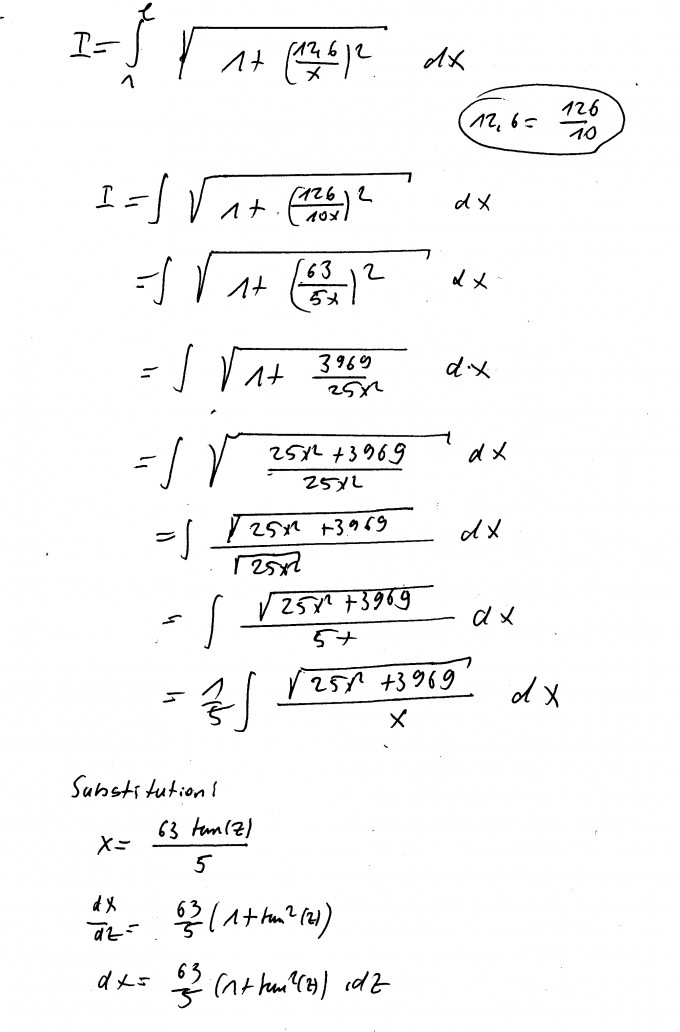 I = ∫₁ᵉ √(1 + (12,6/x)²) dx
12,6 = 126/10
I = ∫ √(1 + (126/10x)²) dx
= ∫ √(1 + (63/5x)²) dx
= ∫ √(1 + 3969/25x²) d·x
= ∫ √((25x² + 3969)/25x²) dx
= ∫ √(25x² + 3969)/√(25x²) dx
= ∫ √(25x² + 3969)/5x dx
= 1/5 ∫ √(25x² + 3969)/x dx
Substitution:
x = 63 tan(z)/5
dx/dz = 63/5 (1 + tan²(z))
dx = 63/5 (1 + tan²(z)) · dz